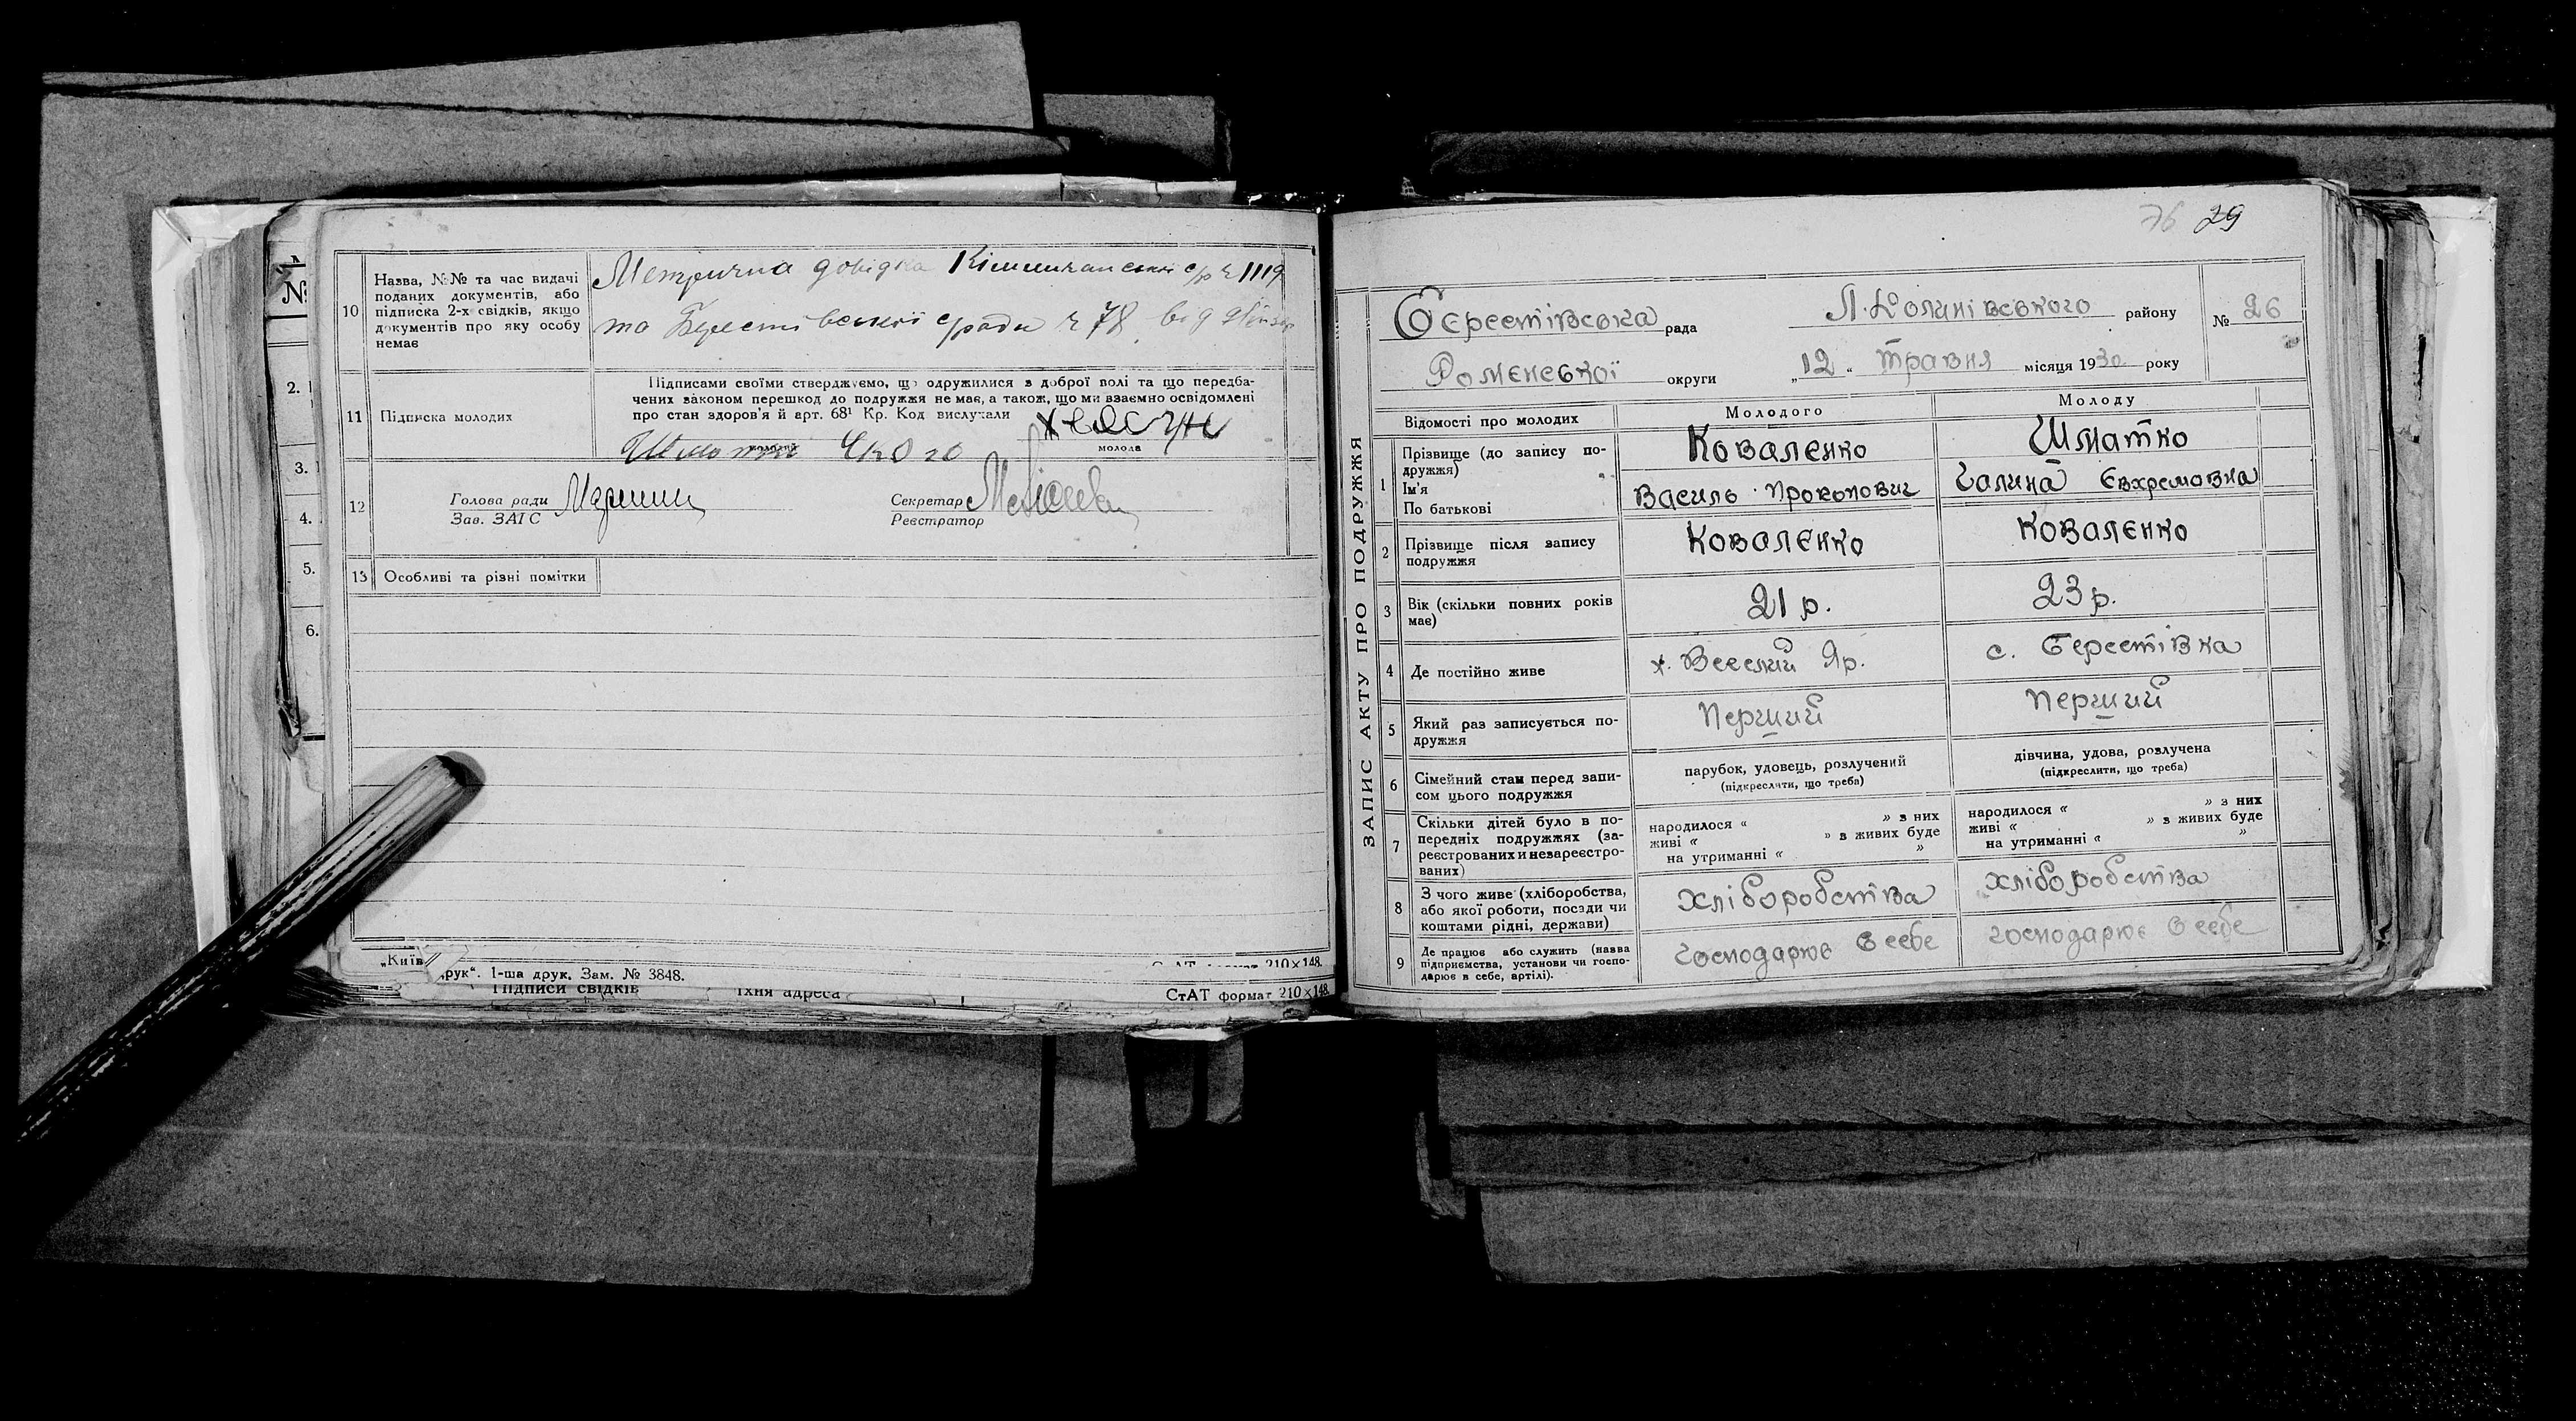 10
Назва, №№ та час видачі
поданих документів, або
підписка 2-х свідків, якщо
документів про яку особу
немає
Метрична довідка с/р № 1119
та Берестівської с/ради № 78 від
11 Підписка молодих
Підписами своїми стверджуємо, що одружилися з доброї волі та що передба-
чених законом перешкод до подружжя не має, а також, що ми взаємно освідомлені
про стан здоров'я й арт. 68¹ Кр. Код вислухали
молодий
молода
12
Голова ради
Зав. ЗАГС
Секретар
Реєстратор
13 Особливі та різні помітки
№
2.
3.
4.
5.
6.
„Київ
друк“. 1-ша друк. Зам. № 3848.
210×148.
Підписи свідків їхня адреса СтАТ формат 210×148
76 29
ЗАПИС АКТУ ПРО ПОДРУЖЖЯ
Берестівська рада Л.Долинівського району № 26
Роменської округи „12“ травня місяця 1930 року
Відомості про молодих Молодого Молоду
1
Прізвище (до запису по-
дружжя)
Ім'я
По батькові
Коваленко Шматко
Василь Прокопович Галина Євхремовна
2
Прізвище після запису
подружжя
Коваленко Коваленко
3
Вік (скільки повних років
має)
21 р. 23 р.
4 Де постійно живе х. Веселий Яр. с. Берестівка
5
Який раз записується по-
дружжя
Перший Перший
6
Сімейний стан перед запи-
сом цього подружжя
парубок, удовець, розлучений
(підкреслити, що треба)
дівчина, удова, розлучена
(підкреслити, що треба)
7
Скільки дітей було в по-
передніх подружжях (за-
реєстрованих и незареєстро-
ваних)
народилося « » з них
живі « » в живих буде
на утриманні « »
народилося « » з них
живі « » в живих буде
на утриманні « »
8
З чого живе (хліборобства,
або якої роботи, посади чи
коштами рідні, держави)
хліборобства хліборобства
9
Де працює або служить (назва
підприємства, установи чи госпо-
дарює в себе, артілі).
господарює в себе господарює в себе